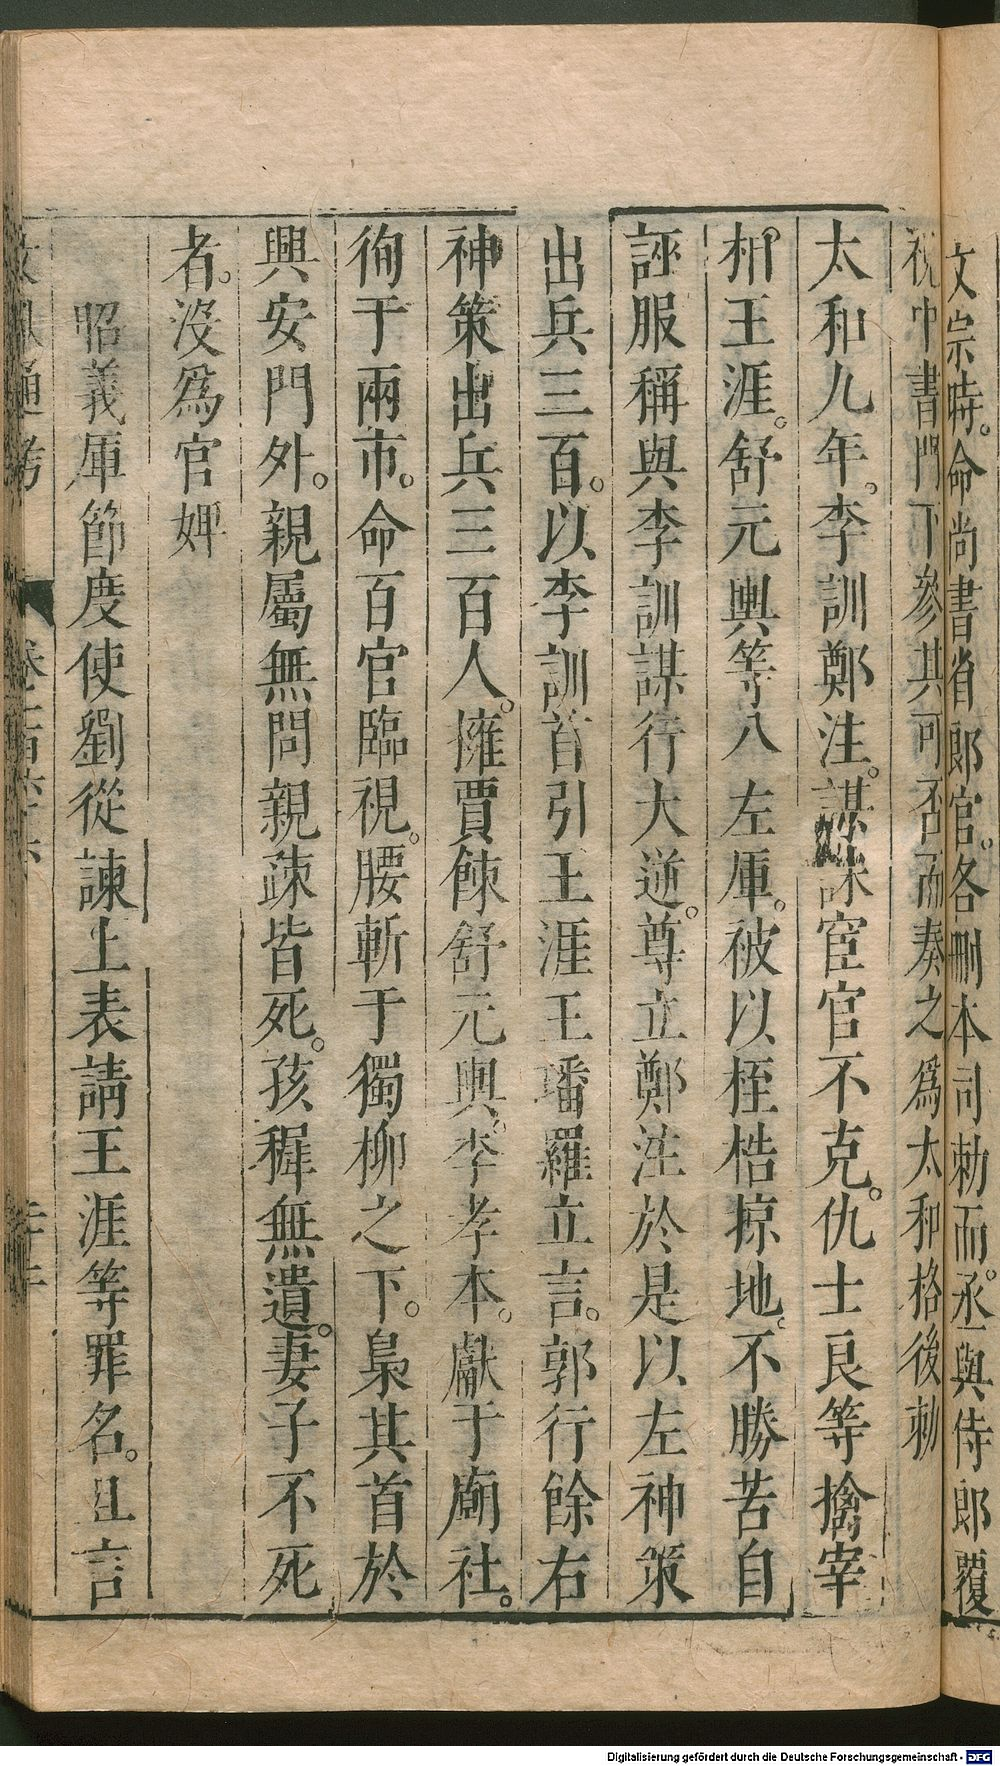 文宗時。命尚書省郎官。各刪本司勅而。丞與侍郎覆
視中書門下參其可否而奏之爲太和格後勅
太和九年。李訓鄭注。謀誅宦官不克。仇士良等擒宰
相王涯。舒元輿等入左軍。被以桎梏掠地。不勝苦自
誣服稱與李訓謀行大逆。尊立鄭注於是以左神策
出兵三百。以李訓首引王涯王璠羅立言。郭行餘右
神策出兵三百人。擁賈餗舒元輿。李孝本。獻于廟社。
徇于兩市。命百官臨視。腰斬于獨柳之下。梟其首於
興安門外。親屬無問親疎皆死。孩穉無遺。妻子不死
者。沒爲官婢
昭義軍節度使劉從諫上表請王涯等罪名。且言
文獻通考 卷一百六十六
Digitalisierung gefördert durch die Deutsche Forschungsgemeinschaft - DFG